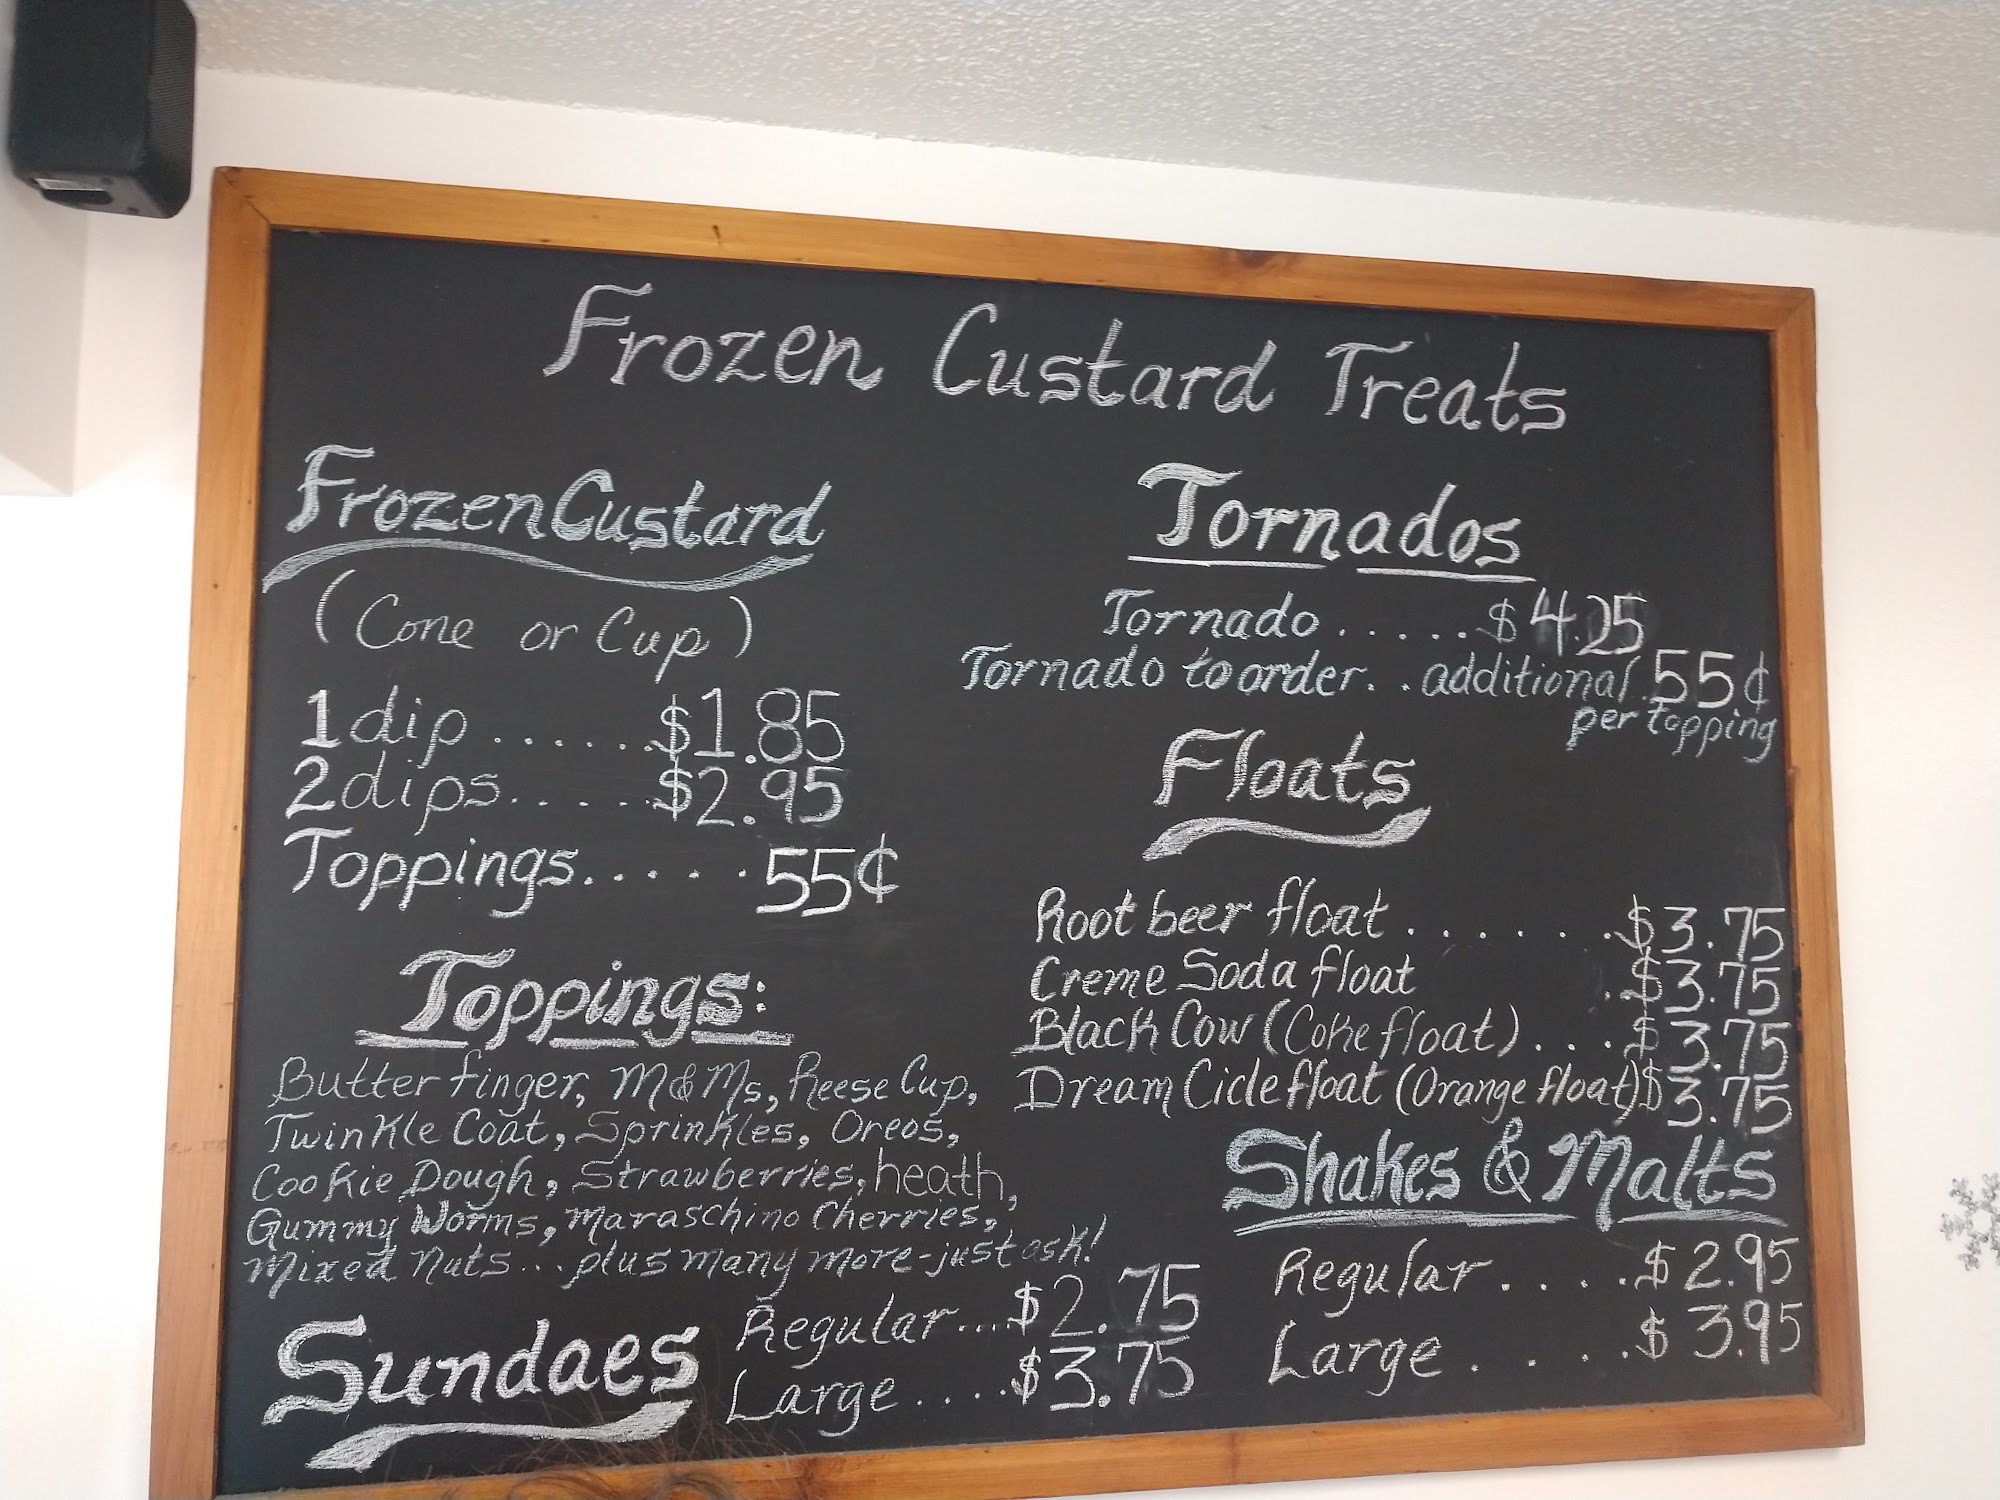 Frozen Custard Treats
Frozen Custard
(Cone or Cup)
1 dip ...... $1.85
2 dips ..... $2.95
Toppings...... 55¢
Toppings:
Butterfinger, M&Ms, Reese Cup,
Twinkle Coat, Sprinkles, Oreos,
Cookie Dough, Strawberries, heath,
Gummy Worms, Maraschino Cherries,
Mixed Nuts... plus many more - just ask!
Sundaes
Regular .... $2.75
Large .... $3.75
Tornados
Tornado ..... $4.25
Tornado to order.. additional 55¢
per topping
Floats
Root beer float ....... $3.75
Creme Soda float . $3.75
Black Cow (Coke float) ... $3.75
Dream Cicle float (Orange float) $3.75
Shakes & Malts
Regular ..... $2.95
Large ..... $3.95